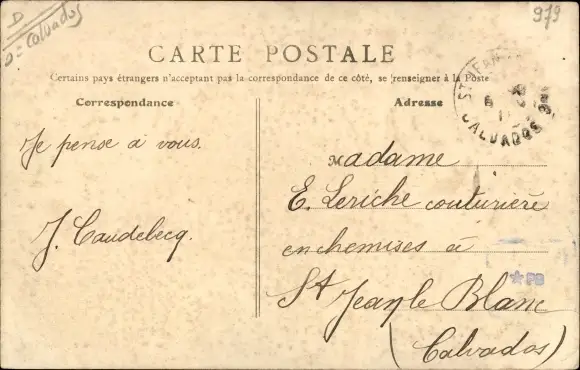 D.
D= Calvados
979
CARTE POSTALE
Certains pays étrangers n'acceptant pas la correspondance de ce côté, se renseigner à la Poste
Correspondance
Adresse
CALVADOS
Je pense à vous.
J. Caudebecq.
Madame
E. Leriche couturière
en chemises à
St Jean le Blanc
(Calvados)
PB